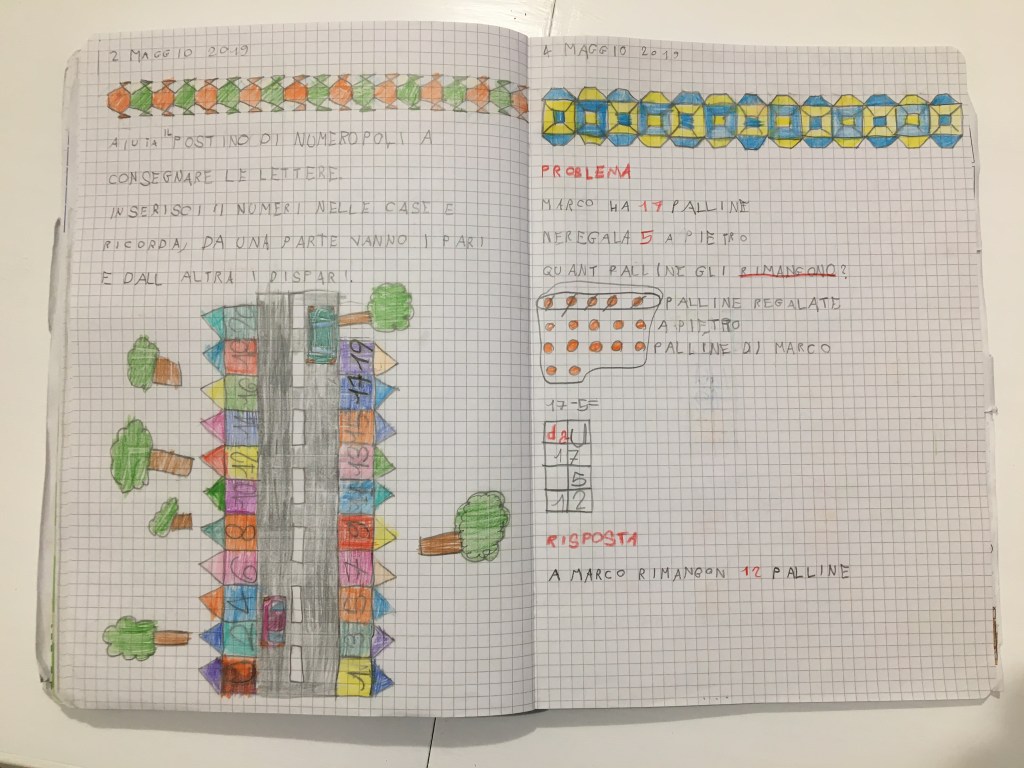 2 MAGGIO 2019
AIUTA IL POSTINO DI NUMEROPOLI A
CONSEGNARE LE LETTERE.
INSERISCI I NUMERI NELLE CASE E
RICORDA, DA UNA PARTE VANNO I PARI
E DALL ALTRA I DISPARI.
20
18 19
16 17
14 15
12 13
10 11
8 9
6 7
4 5
2 3
0 1
4 MAGGIO 2019
PROBLEMA
MARCO HA 17 PALLINE
NE REGALA 5 A PIETRO
QUANT PALLINE GLI RIMANGONO?
PALLINE REGALATE
A PIETRO
PALLINE DI MARCO
17-5=
da U
1 7
5
1 2
RISPOSTA
A MARCO RIMANGON 12 PALLINE